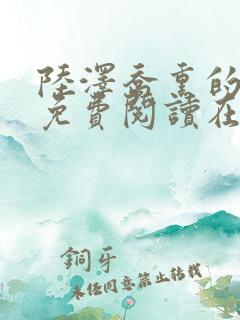 陸澤喬熏的
免費閱讀在
銅牙
未經同意禁止轉載